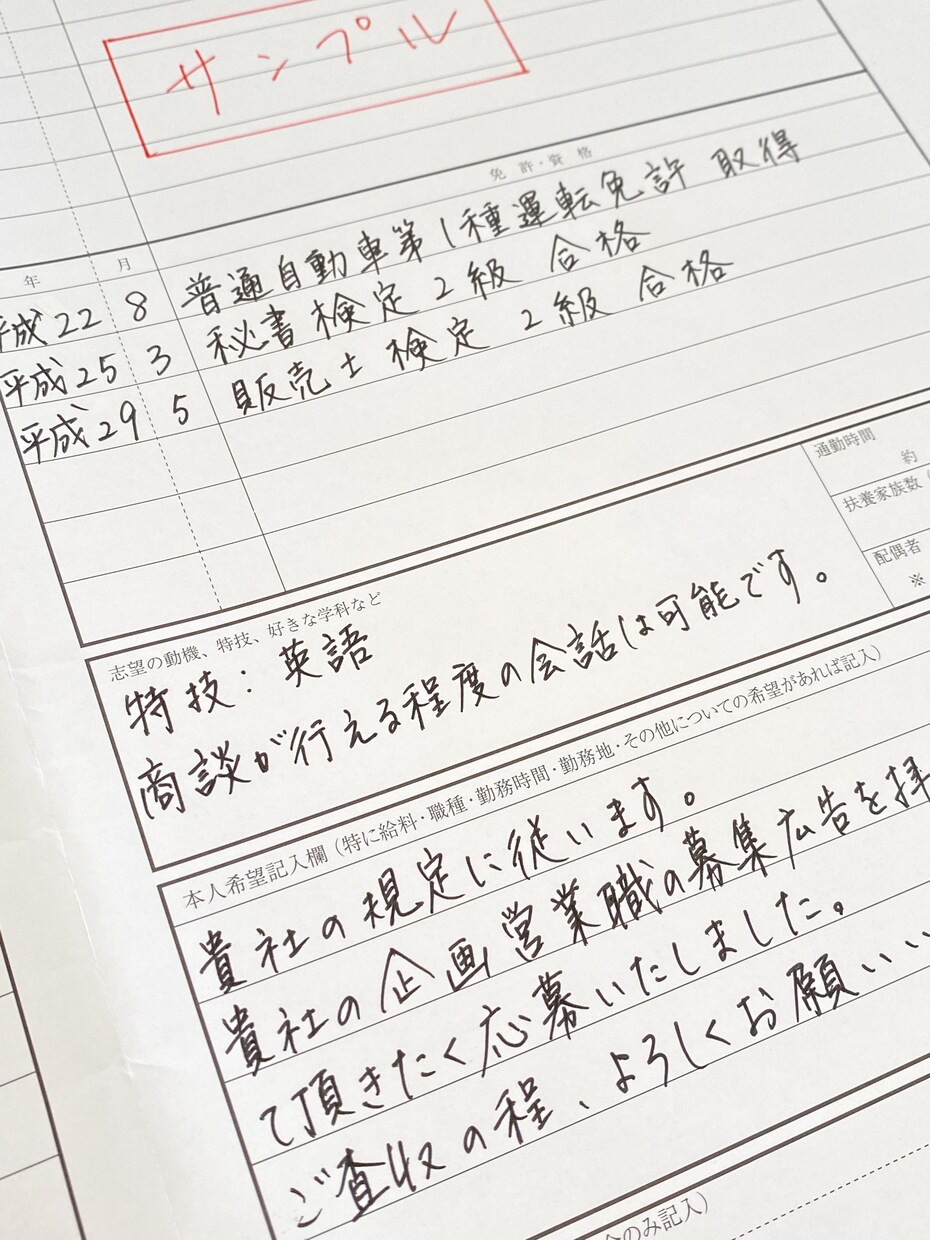 サンプル
年 月 免許・資格
平成22 8 普通自動車第1種運転免許 取得
平成25 3 秘書検定2級 合格
平成29 5 販売士検定 2級 合格
通勤時間
約
扶養家族数
配偶者
※
志望の動機、特技、好きな学科など
特技：英語
商談が行える程度の会話は可能です。
本人希望記入欄（特に給料・職種・勤務時間・勤務地・その他についての希望があれば記入）
貴社の規定に従います。
貴社の企画営業職の募集広告を拝
て頂きたく応募いたしました。
ご査収の程、よろしくお願いい
のみ記入）